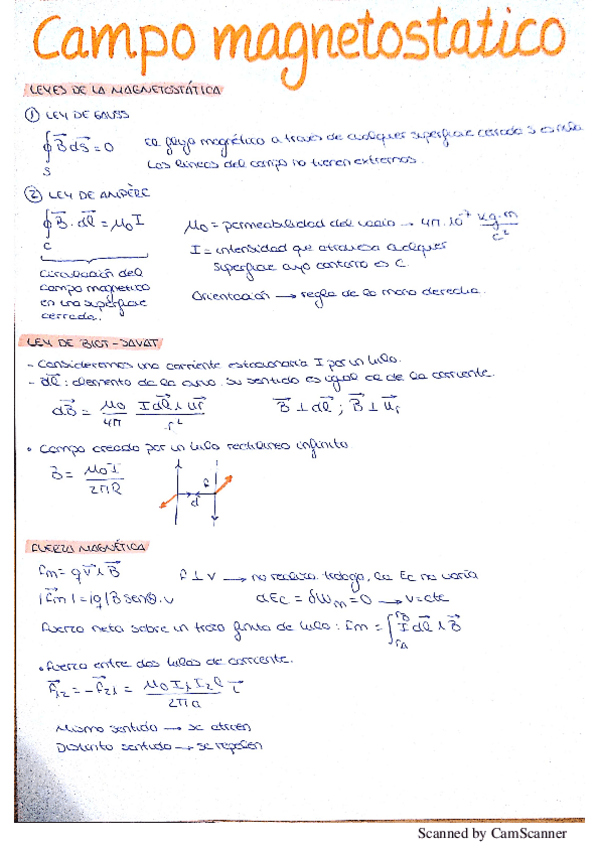 Campo magnetostatico
LEYES DE LA MAGNETOSTÁTICA
① LEY DE GAUSS
∮ B⃗ dS⃗ = 0 El flujo magnético a través de cualquier superficie cerrada S es nulo
S Las líneas del campo no tienen extremos.
② LEY DE AMPÈRE
∮ B⃗ · dl⃗ = μ₀ I μ₀ = permeabilidad del vacío → 4π·10⁻⁷ kg·m/C²
C I = intensidad que atraviesa cualquier
superficie cuyo contorno es C.
Circulación del
campo magnético
en una superficie
cerrada.
Orientación → regla de la mano derecha.
LEY DE BIOT-SAVAT
- Consideremos una corriente estacionaria I por un hilo.
- dl⃗ : elemento de la curva. Su sentido es igual al de la corriente.
dB⃗ = μ₀/4π I dl⃗ ∧ ur⃗ / r² B⃗ ⊥ dl⃗ ; B⃗ ⊥ u⃗r
• Campo creado por un hilo rectilíneo infinito
B = μ₀ I / 2πR
d
FUERZA MAGNÉTICA
Fm = q v⃗ ∧ B⃗ F ⊥ v → no realiza trabajo, la Ec no varía
|F⃗m| = |q| B senθ · v dEc = δWm = 0 → v = cte
Fuerza neta sobre un trozo finito de hilo : Fm = ∫ I dl⃗ ∧ B⃗
rB
rA
• Fuerza entre dos hilos de corriente.
F⃗12 = -F⃗21 = μ₀ I₁ I₂ l / 2πa i⃗
Mismo sentido → se atraen
Distinto sentido → se repelen
Scanned by CamScanner